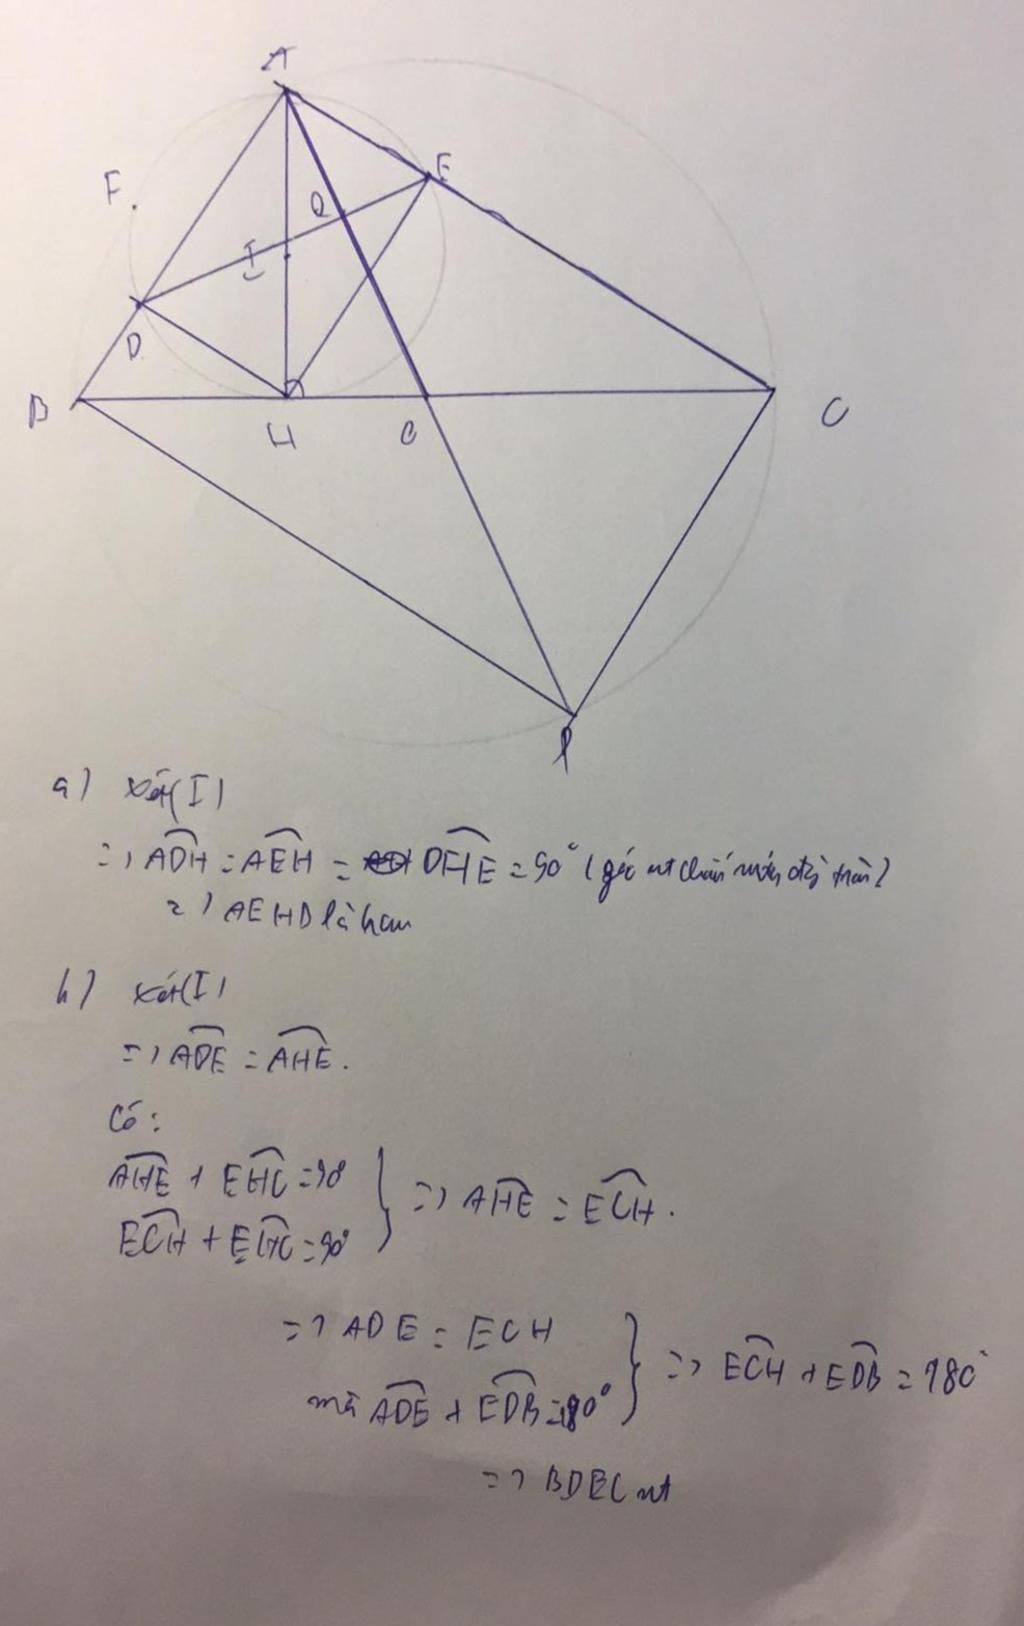 A
E
F
Q
I
D
B
H
O
C
P
a) Xét (I)
=> ADH = AEH = DHE = 90° (góc nt chắn nửa đg tròn)
=> AEHD là hcn
b) Xét (I)
=> ADE = AHE.
Có:
AHE + EHC = 90° => AHE = ECH.
ECH + EHC = 90°
=> ADE = ECH => ECH + EDB = 180°
mà ADE + EDB = 180°
=> BDEC nt